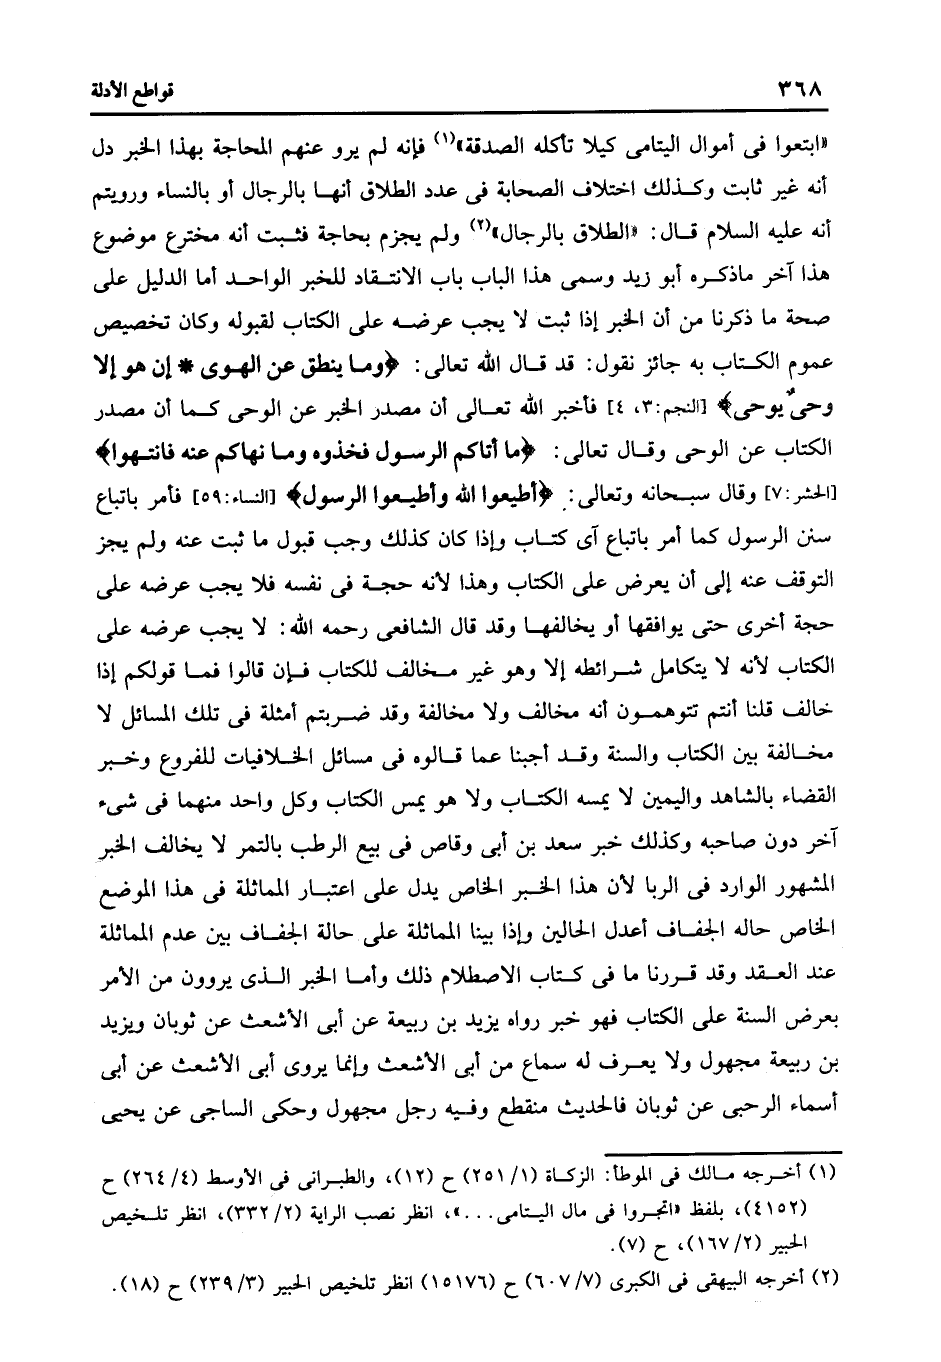 ٣٦٨
قواطع الأدلة
«ابتعوا فى أموال اليتامى كيلا تأكله الصدقة»(١) فإنه لم يرو عنهم المحاجة بهذا الخبر دل
أنه غير ثابت وكذلك اختلاف الصحابة فى عدد الطلاق أنها بالرجال أو بالنساء ورويتم
أنه عليه السلام قال: «الطلاق بالرجال»(٢) ولم يجزم بحاجة فثبت أنه مخترع موضوع
هذا آخر ماذكره أبو زيد وسمى هذا الباب باب الانتقاد للخبر الواحد أما الدليل على
صحة ما ذكرنا من أن الخبر إذا ثبت لا يجب عرضه على الكتاب لقبوله وكان تخصيص
عموم الكتاب به جائز نقول: قد قال الله تعالى: ﴿وما ينطق عن الهوى * إن هو إلا
وحىٌ يوحى﴾ [النجم:٣، ٤] فأخبر الله تعالى أن مصدر الخبر عن الوحى كما أن مصدر
الكتاب عن الوحى وقال تعالى: ﴿ما أتاكم الرسول فخذوه وما نهاكم عنه فانتهوا﴾
[الحشر:٧] وقال سبحانه وتعالى: ﴿أطيعوا الله وأطيعوا الرسول﴾ [النساء:٥٩] فأمر باتباع
سنن الرسول كما أمر باتباع آى كتاب وإذا كان كذلك وجب قبول ما ثبت عنه ولم يجز
التوقف عنه إلى أن يعرض على الكتاب وهذا لأنه حجة فى نفسه فلا يجب عرضه على
حجة أخرى حتى يوافقها أو يخالفها وقد قال الشافعى رحمه الله: لا يجب عرضه على
الكتاب لأنه لا يتكامل شرائطه إلا وهو غير مخالف للكتاب فإن قالوا فما قولكم إذا
خالف قلنا أنتم تتوهمون أنه مخالف ولا مخالفة وقد ضربتم أمثلة فى تلك المسائل لا
مخالفة بين الكتاب والسنة وقد أجبنا عما قالوه فى مسائل الخلافيات للفروع وخبر
القضاء بالشاهد واليمين لا يمسه الكتاب ولا هو يمس الكتاب وكل واحد منهما فى شىء
آخر دون صاحبه وكذلك خبر سعد بن أبى وقاص فى بيع الرطب بالتمر لا يخالف الخبر
المشهور الوارد فى الربا لأن هذا الخبر الخاص يدل على اعتبار المماثلة فى هذا الموضع
الخاص حاله الجفاف أعدل الحالين وإذا بينا المماثلة على حالة الجفاف بين عدم المماثلة
عند العقد وقد قررنا ما فى كتاب الاصطلام ذلك وأما الخبر الذى يروون من الأمر
بعرض السنة على الكتاب فهو خبر رواه يزيد بن ربيعة عن أبى الأشعث عن ثوبان ويزيد
بن ربيعة مجهول ولا يعرف له سماع من أبى الأشعث وإنما يروى أبى الأشعث عن أبى
أسماء الرحبى عن ثوبان فالحديث منقطع وفيه رجل مجهول وحكى الساجى عن يحيى
(١) أخرجه مالك فى الموطأ: الزكاة (٢٥١/١) ح (١٢)، والطبرانى فى الأوسط (٢٦٤/٤) ح
(٤١٥٢)، بلفظ «اتجروا فى مال اليتامى...»، انظر نصب الراية (٣٣٢/٢)، انظر تلخيص
الحبير (١٦٧/٢)، ح (٧).
(٢) أخرجه البيهقى فى الكبرى (٦٠٧/٧) ح (١٥١٧٦) انظر تلخيص الحبير (٢٣٩/٣) ح (١٨).